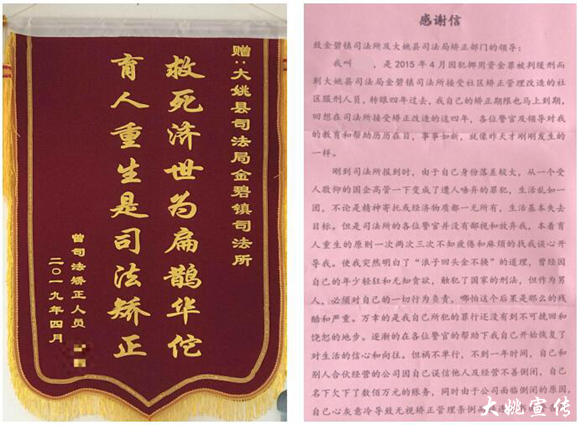 赠：大姚县司法局金碧镇司法所
救死济世为扁鹊华佗
育人重生是司法矫正
曾司法矫正人员
二〇一九年四月
感谢信
致金碧镇司法所及大姚县司法局矫正部门的领导：
我叫　　，是 2015 年 4 月因犯挪用资金罪被判缓刑而
到大姚县司法局金碧镇司法所接受社区矫正管理改造的社
区服刑人员，转眼四年过去，我自己的矫正期限也马上到期，
回想在司法所接受矫正改造的这四年，各位警官及领导对我
的教育和帮助历历在目，事事如新，就像昨天才刚刚发生的
一样。
刚到司法所报到时，由于自己身份落差较大，从一个受
人敬仰的国企高管一下变成了遭人唾弃的罪犯，生活乱如一
团，不论是精神寄托或经济物质都一无所有，生活基本失去
目标。但是司法所的各位警官并没有鄙视和放弃我，本着育
人重生的原则一次两次三次不知疲倦和麻烦的找我谈心开
导我。使我突然明白了“浪子回头金不换”的道理，曾经因
自己的年少轻狂和无知贪欲，触犯了国家的刑法，但作为男
人，必须对自己的一切行为负责，哪怕这个后果是那么的残
酷和严重。万幸的是我自己所犯的罪行还没有到不可挽回和
饶恕的地步。逐渐的在各位警官的帮助下我自己开始恢复了
对生活的信心和向往。但祸不单行，不到一年时间，自己和
别人合伙经营的公司因自己误信他人及经营不善倒闭，自己
名下欠下了数佰万元的账务，同时由于公司面临倒闭的原因，
自己心灰意冷导致无视矫正管理条例
大姚宣传